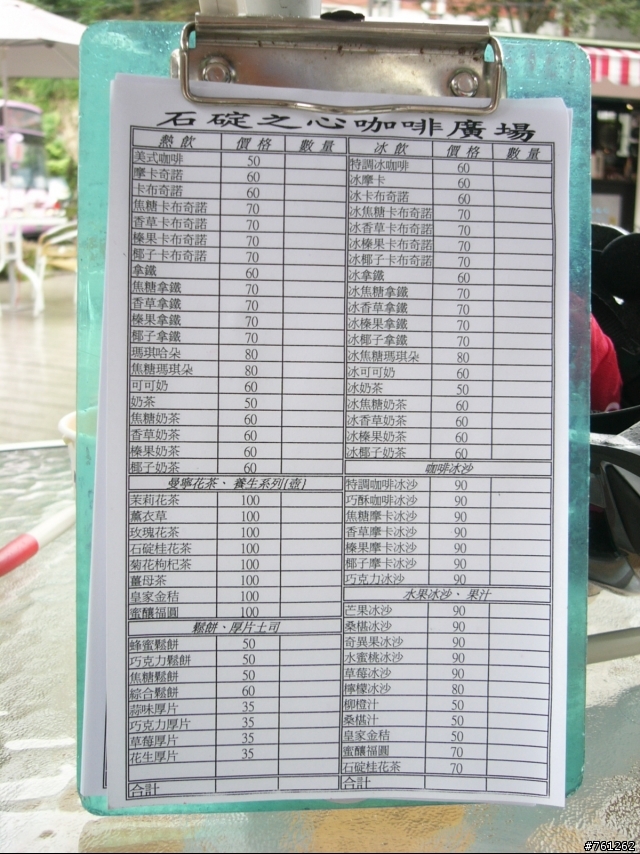 石碇之心咖啡廣場
熱飲 價格 數量
美式咖啡 50
摩卡奇諾 60
卡布奇諾 60
焦糖卡布奇諾 70
香草卡布奇諾 70
榛果卡布奇諾 70
椰子卡布奇諾 70
拿鐵 60
焦糖拿鐵 70
香草拿鐵 70
榛果拿鐵 70
椰子拿鐵 70
瑪琪哈朵 80
焦糖瑪琪朵 80
可可奶 60
奶茶 50
焦糖奶茶 60
香草奶茶 60
榛果奶茶 60
椰子奶茶 60
曼寧花茶、養生系列(壺)
茉莉花茶 100
薰衣草 100
玫瑰花茶 100
石碇桂花茶 100
菊花枸杞茶 100
薑母茶 100
皇家金桔 100
蜜釀福圓 100
鬆餅、厚片土司
蜂蜜鬆餅 50
巧克力鬆餅 50
焦糖鬆餅 50
綜合鬆餅 60
蒜味厚片 35
巧克力厚片 35
草莓厚片 35
花生厚片 35
合計
冰飲 價格 數量
特調冰咖啡 60
冰摩卡 60
冰卡布奇諾 60
冰焦糖卡布奇諾 70
冰香草卡布奇諾 70
冰榛果卡布奇諾 70
冰椰子卡布奇諾 70
冰拿鐵 60
冰焦糖拿鐵 70
冰香草拿鐵 70
冰榛果拿鐵 70
冰椰子拿鐵 70
冰焦糖瑪琪朵 80
冰可可奶 60
冰奶茶 50
冰焦糖奶茶 60
冰香草奶茶 60
冰榛果奶茶 60
冰椰子奶茶 60
咖啡冰沙
特調咖啡冰沙 90
巧酥咖啡冰沙 90
焦糖摩卡冰沙 90
香草摩卡冰沙 90
榛果摩卡冰沙 90
椰子摩卡冰沙 90
巧克力冰沙 90
水果冰沙、果汁
芒果冰沙 90
桑椹冰沙 90
奇異果冰沙 90
水蜜桃冰沙 90
草莓冰沙 90
檸檬冰沙 80
柳橙汁 50
桑椹汁 50
皇家金桔 50
蜜釀福圓 70
石碇桂花茶 70
合計
#761262